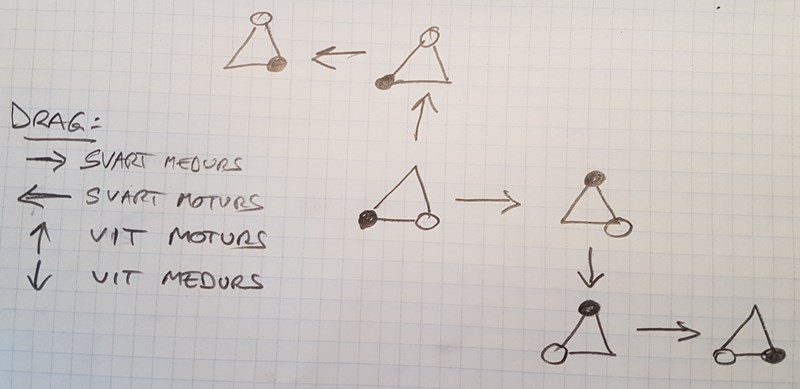 DRAG:
→ SVART MEDURS
← SVART MOTURS
↑ VIT MOTURS
↓ VIT MEDURS